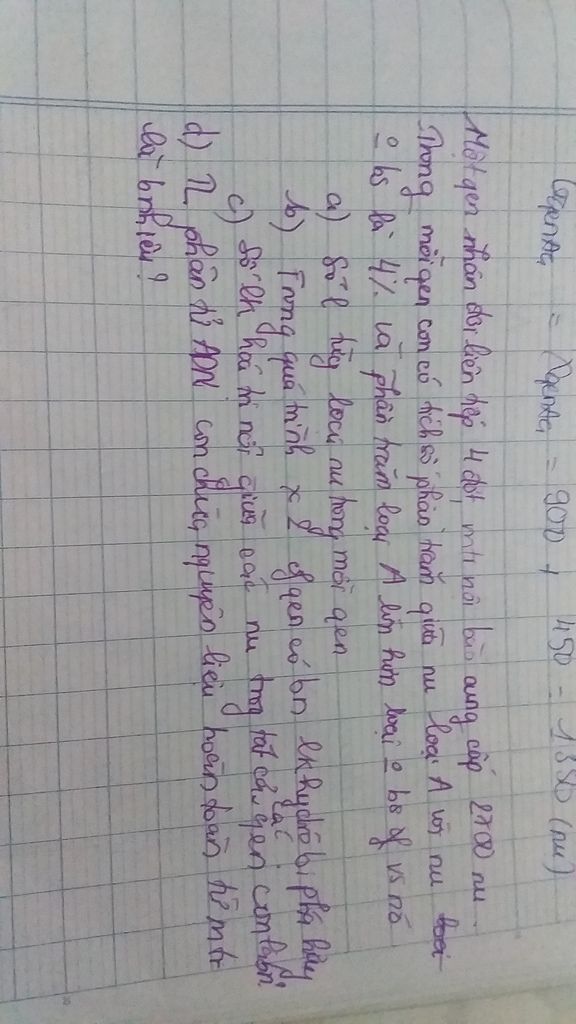 = 9000 + 450 = 1350 (nu)
Một gen nhân đôi liên tiếp 4 đợt mtr nội bào cung cấp 2700 nu.
Trong mỗi gen con có tích số phần trăm giữa nu loại A với nu loại
o bs là 4% và phần trăm loại A lớn hơn loại o bs vs nó
a) Số l từng loại nu trong mỗi gen
b) Trong quá trình x2 gen có bn lk hydrô bị phá hủy
c) Số lk hoá trị nối giữa các nu trong tất cả các gen con là bn
d) phân tử ADN con chứa nguyên liệu hoàn toàn từ mtr
là bnhiêu?